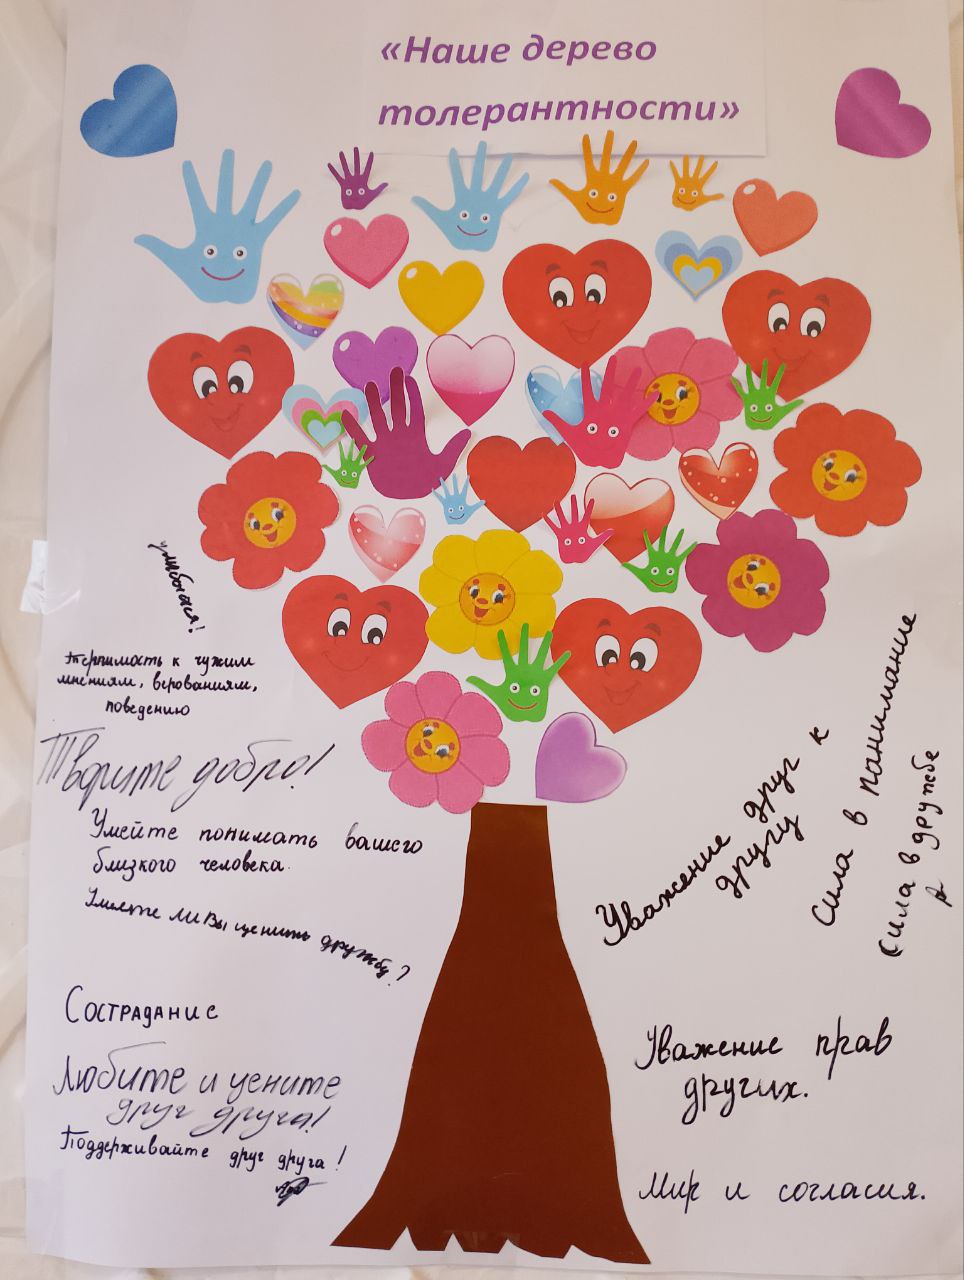 «Наше дерево
толерантности»
улыбайся!
Терпимость к чужим
мнениям, верованиям,
поведению
Творите добро!
Умейте понимать вашего
близкого человека.
Умеете ли Вы ценить дружбу?
Сострадание
Любите и цените
друг друга!
Поддерживайте друг друга!
Уважение друг к
другу
Сила в панимание
Сила в друтебе
Уважение прав
других.
Мир и согласия.